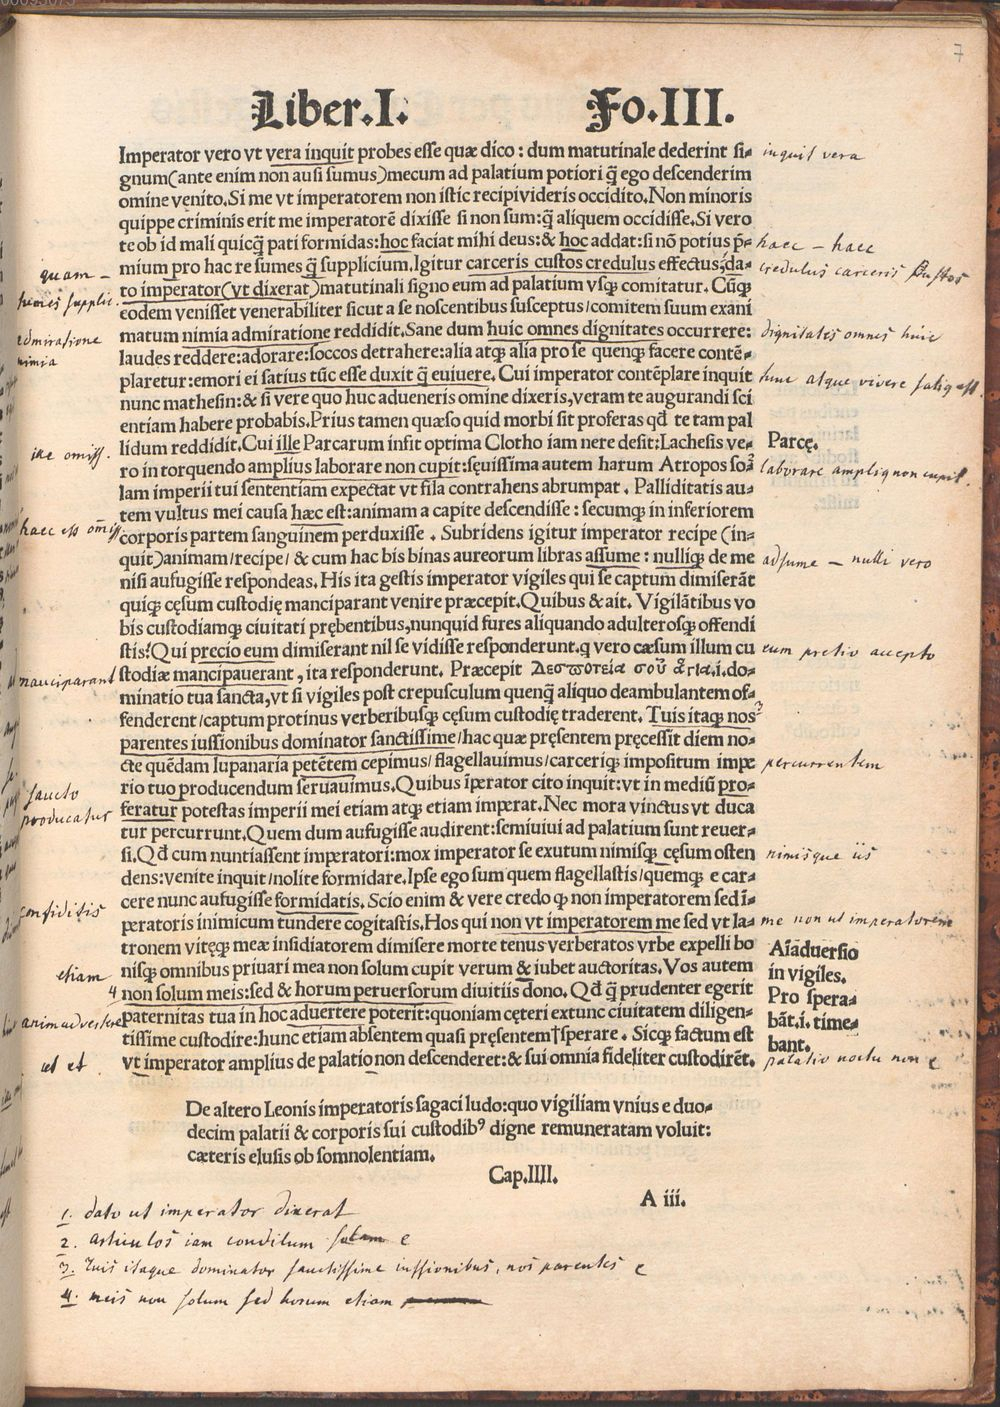 7
Liber.I. Fo.III.
Imperator vero vt vera inquit probes esse quæ dico: dum matutinale dederint si-
gnum(ante enim non ausi sumus)mecum ad palatium potiori q̃ ego descenderim
omine venito.Si me vt imperatorem non istic recipivideris occidito.Non minoris
quippe criminis erit me imperatorē dixisse si non sum:q̃ aliquem occidisse.Si vero
te ob id mali quicq̃ pati formidas:hoc faciat mihi deus:& hoc addat:si nō potius p̄-
mium pro hac re sumes q̃ supplicium.Igitur carceris custos credulus effectus,²da-
to imperator(vt dixerat)matutinali signo eum ad palatium vsq; comitatur. Cūq;
eodem venisset venerabiliter sicut a se noscentibus susceptus/comitem suum exani
matum nimia admiratione reddidit.Sane dum huic omnes dignitates occurrere:
laudes reddere:adorare:soccos detrahere:alia atq; alia pro se quenq; facere contē-
plaretur:emori ei satius tūc esse duxit q̃ euiuere.Cui imperator contēplare inquit
nunc mathesin:& si vere quo huc adueneris omine dixeris,veram te augurandi sci
entiam habere probabis.Prius tamen quæso quid morbi sit proferas qd̄ te tam pal
lidum reddidit.Cui ille Parcarum insit optima Clotho iam nere desit:Lachesis ve-
ro in torquendo amplius laborare non cupit:sęuissima autem harum Atropos so²
lam imperii tui sententiam expectat vt fila contrahens abrumpat. Palliditatis au-
tem vultus mei causa hæc est:animam a capite descendisse: secumq; in inferiorem
corporis partem sanguinem perduxisse. Subridens igitur imperator recipe (in-
quit)animam/recipe/ & cum hac bis binas aureorum libras assume: nulliq; de me
nisi aufugisse respondeas.His ita gestis imperator vigiles qui se captum dimiserāt
quiq; cęsum custodię manciparant venire præcepit.Quibus & ait. Vigilātibus vo
bis custodiamq; ciuitati prębentibus,nunquid fures aliquando adulterosq; offendi
stis?Qui precio eum dimiserant nil se vidisse responderunt.q vero cæsum illum cu
stodiæ mancipauerant, ita responderunt. Præcepit Δεσποτεία σοῦ ἁγία.i.do-
minatio tua sancta,vt si vigiles post crepusculum quenq; aliquo deambulantem of-
fenderent/captum protinus verberibusq; cęsum custodię traderent. Tuis itaq; nos³
parentes iussionibus dominator sanctissime/hac quæ pręsentem pręcessit diem no-
cte quēdam lupanaria petētem cepimus/flagellauimus/carceriq; impositum impe
rio tuo producendum seruauimus.Quibus īperator cito inquit:vt in mediū pro-
feratur potestas imperii mei etiam atq; etiam imperat.Nec mora vinctus vt duca
tur percurrunt.Quem dum aufugisse audirent:semiuiui ad palatium sunt reuer-
si.Qd̄ cum nuntiassent imperatori:mox imperator se exutum nimisq; cęsum osten
dens:venite inquit/nolite formidare.Ipse ego sum quem flagellastis/quemq; e car-
cere nunc aufugisse formidatis.Scio enim & vere credo q̢ non imperatorem sed ī-
peratoris inimicum tundere cogitastis.Hos qui non vt imperatorem me sed vt la-
tronem vitęq; meæ insidiatorem dimisere morte tenus verberatos vrbe expelli bo
nisq; omnibus priuari mea non solum cupit verum & iubet auctoritas.Vos autem
4 non solum meis:sed & horum peruersorum diuitiis dono. Qd̄ q̃ prudenter egerit
paternitas tua in hoc aduertere poterit:quoniam cęteri extunc ciuitatem diligen-
tissime custodire:hunc etiam absentem quasi pręsentem†sperare. Sicq; factum est
vt imperator amplius de palatio non descenderet:& sui omnia fideliter custodirēt.
De altero Leonis imperatoris sagaci ludo:quo vigiliam vnius e duo-
decim palatii & corporis sui custodib⁹ digne remuneratam voluit:
cæteris elusis ob somnolentiam.
Cap.IIII.
A iii.
inquit vera
haec – haec
credulus carceris custos
dignitates omnes huic
tunc atque vivere satiq est.
Parcę.
laborare ampliq non cupit.
adsume – nulli vero
eum pretio accepto
percurrentem
nimisque iis
me non ut imperatorem
Aīaduersio
in vigiles.
Pro spera-
bāt.i. time-
bant.
palatio noctu non
quam –
sumes supplic.
admiratione
nimia
ille omiss.
haec est omiss
manciparant
sancto
producatur
confiditis
etiam
animadvertere
ut et
1. dato ut imperator dixerat
2. articulos iam conditum solam
3. Tuis itaque dominator sanctissime iussionibus, nos parentes
4. meis non solum sed horum etiam